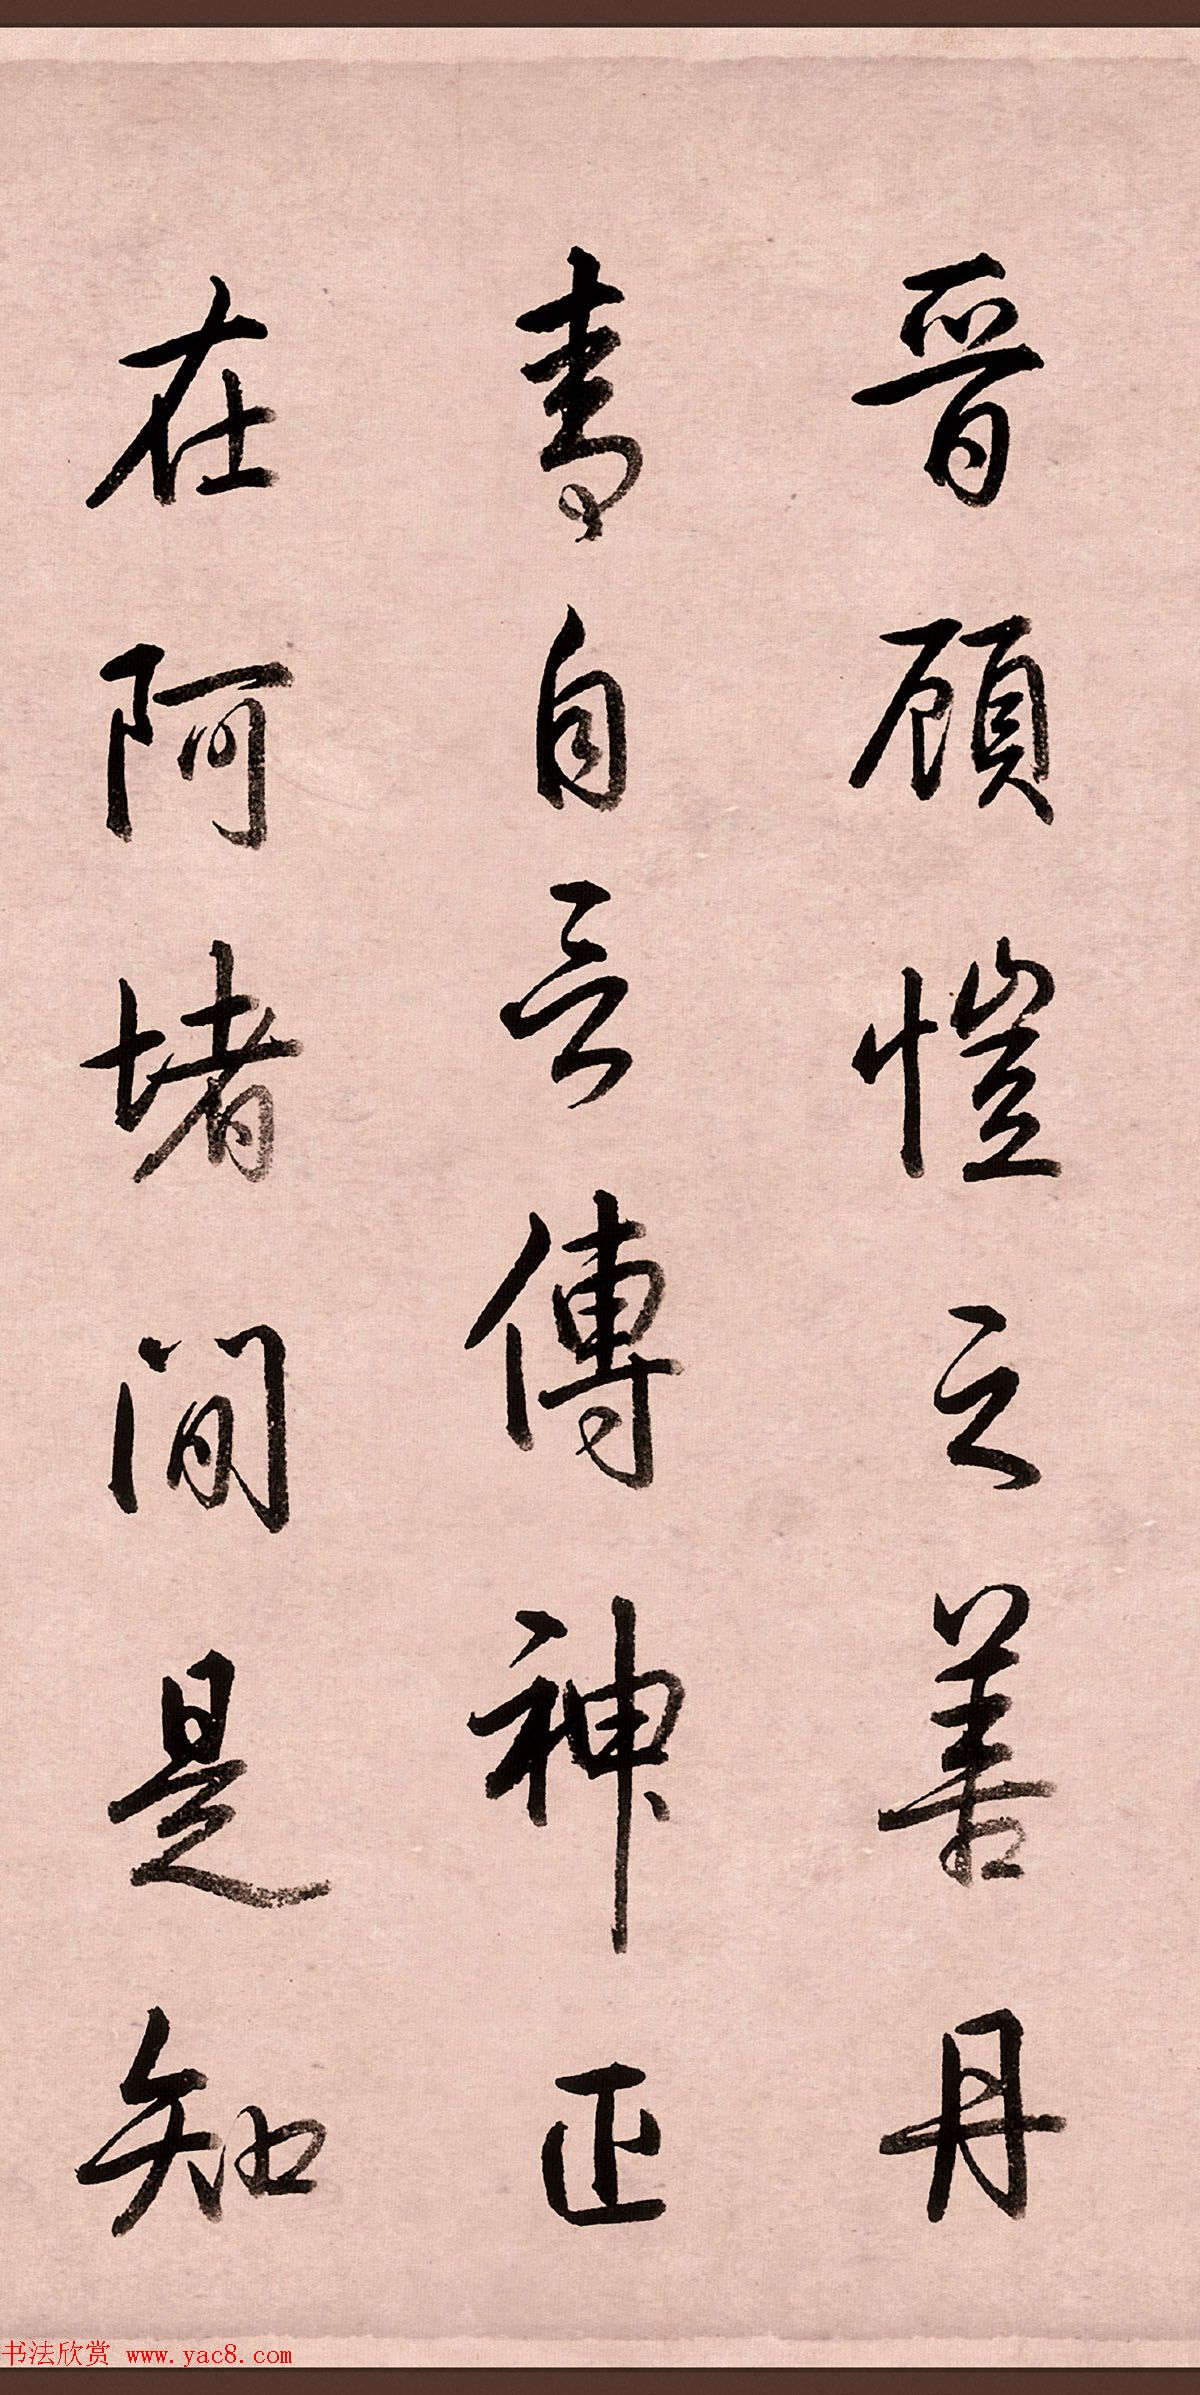 晋顾愷之善丹
青自言傳神正
在阿堵间是知
书法欣赏 www.yac8.com